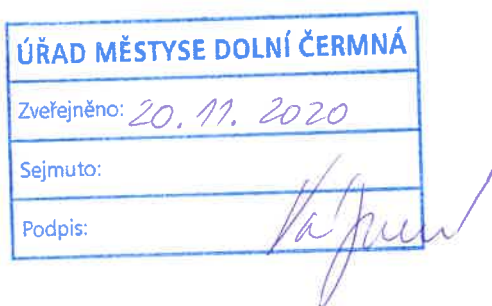 ÚŘAD MĚSTYSE DOLNÍ ČERMNÁ
Zveřejněno: 20. 11. 2020
Sejmuto:
Podpis: